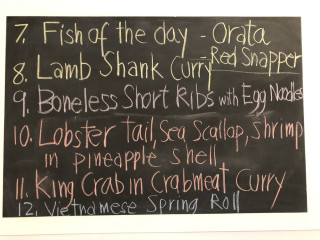 7. Fish of the day - Orata
- Red Snapper
8. Lamb Shank Curry
9. Boneless Short Ribs with Egg Noodles
10. Lobster tail, Sea Scallop, shrimp
in pineapple shell
11. King Crab in Crabmeat Curry
12. Vietnamese Spring Roll